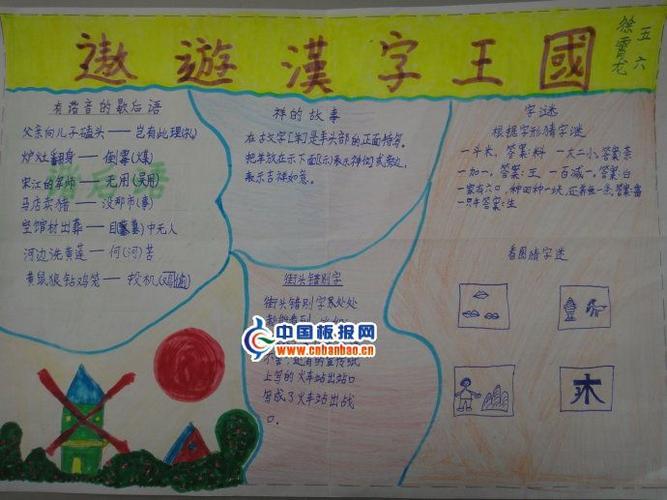 遨遊漢字王國
五六
徐霄龙
有谐音的歇后语
父亲向儿子磕头——岂有此理(礼)
炉灶翻身——倒霉(煤)
宋江的军师——无用(吴用)
马店卖猪——没那市(事)
空馆材出葬——目(墓)中无人
河边洗黄莲——何(河)苦
黄鼠狼钻鸡笼——投机
祥的故事
在古文字[羊]是羊头部的正面特写。
把羊放在示下面(示)表示祥
表示吉祥如意。
街头错别字
街头错别字处处
上写的火车站出站口
写成了火车站出战
口.
字谜
根据字形猜字谜
一斗米，答案:料 一大二小，答案:奈
一加一，答案:王 一百减一。答案:白
一家有六口，种田种一块，还养鱼一条。答案:
一只牛答案:生
看图猜字迷
木
中国板报网
www.cnbanbao.cn